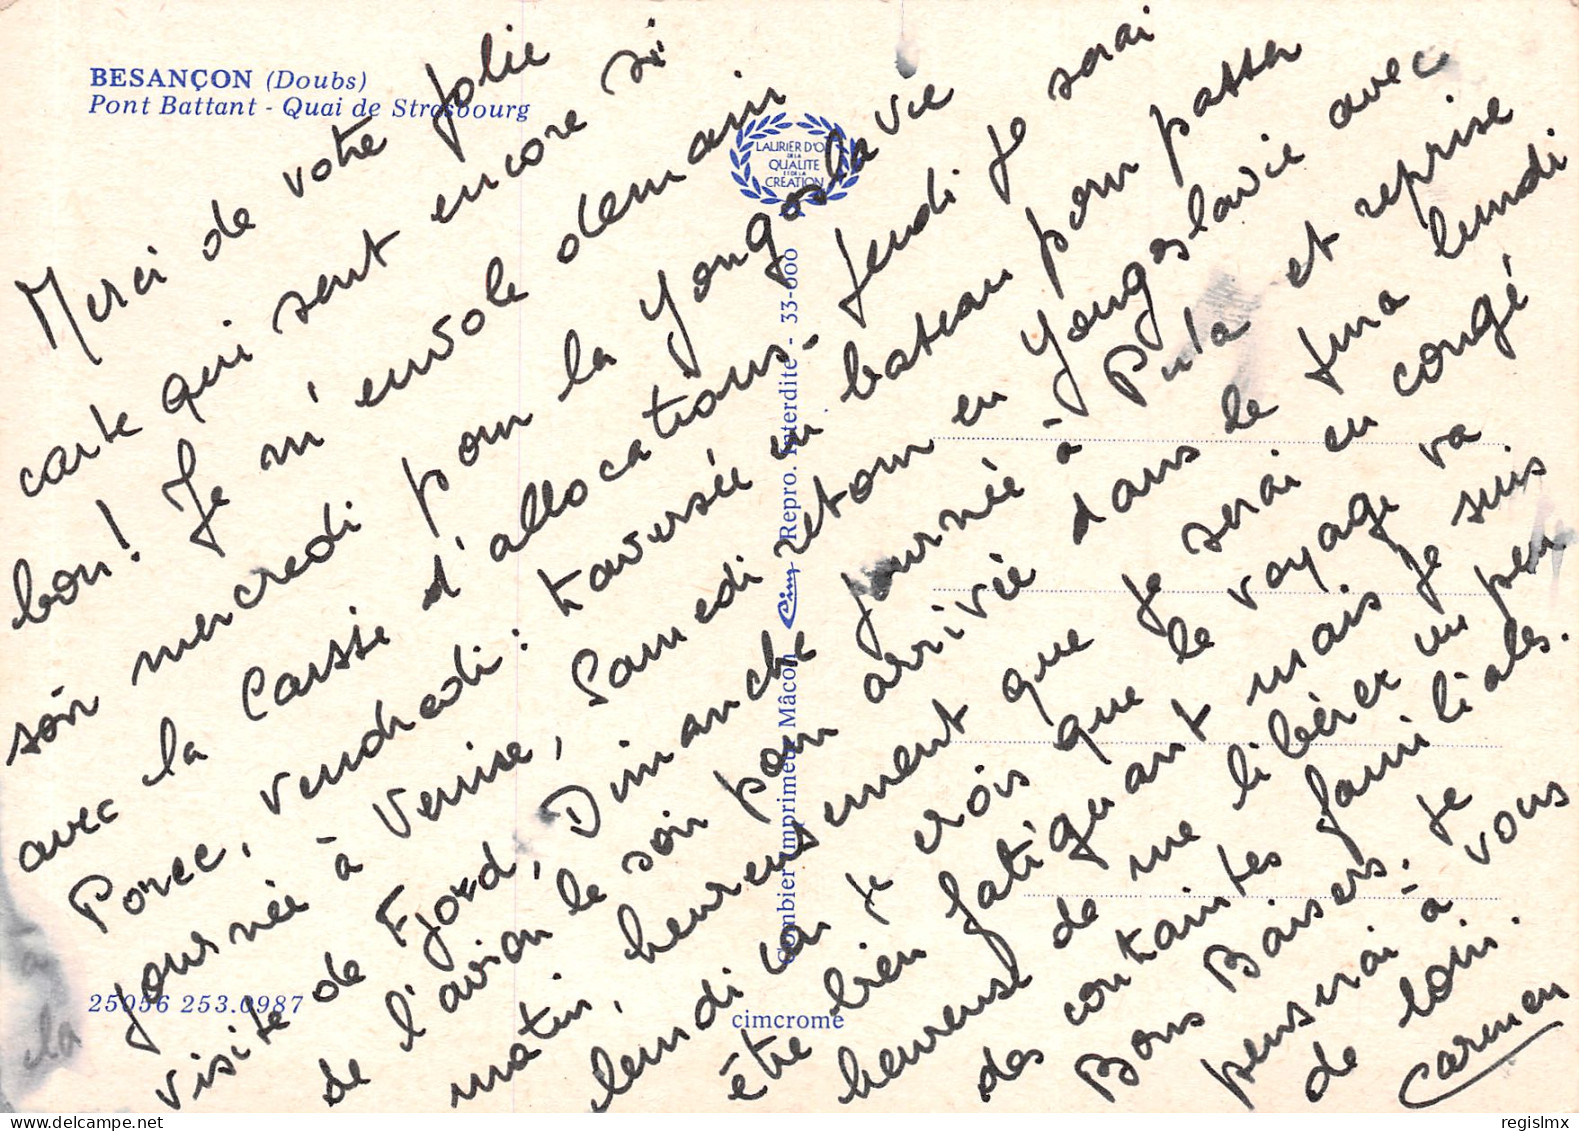 BESANÇON (Doubs)
Pont Battant - Quai de Strasbourg
LAURIER D'OR
DE LA
QUALITE
ET DE LA
CREATION
Merci de votre jolie
carte qui sent encore si
bon ! Je m'envole demain
soir mercredi pour la Yougoslavie
avec la Caisse d'allocations. Jeudi je serai
à
Porec, vendredi : traversée en bateau pour passer
la
journée à Venise, Samedi retour en Yougoslavie avec
visite de Fjord, Dimanche journée à Pula et reprise
de l'avion le soir pour arrivée dans le Jura lundi
matin, heureusement que je serai en congé
lundi car je crois que le voyage va
être bien fatiguant mais je suis
heureuse de me libérer un peu
des contraintes familiales.
Bons Baisers. Je
penserai à vous
de loin.
Carmen
Combier Imprimeur Mâcon Cim Repro. Interdite - 33-000
25056 253.0987
cimcrome
regislmx